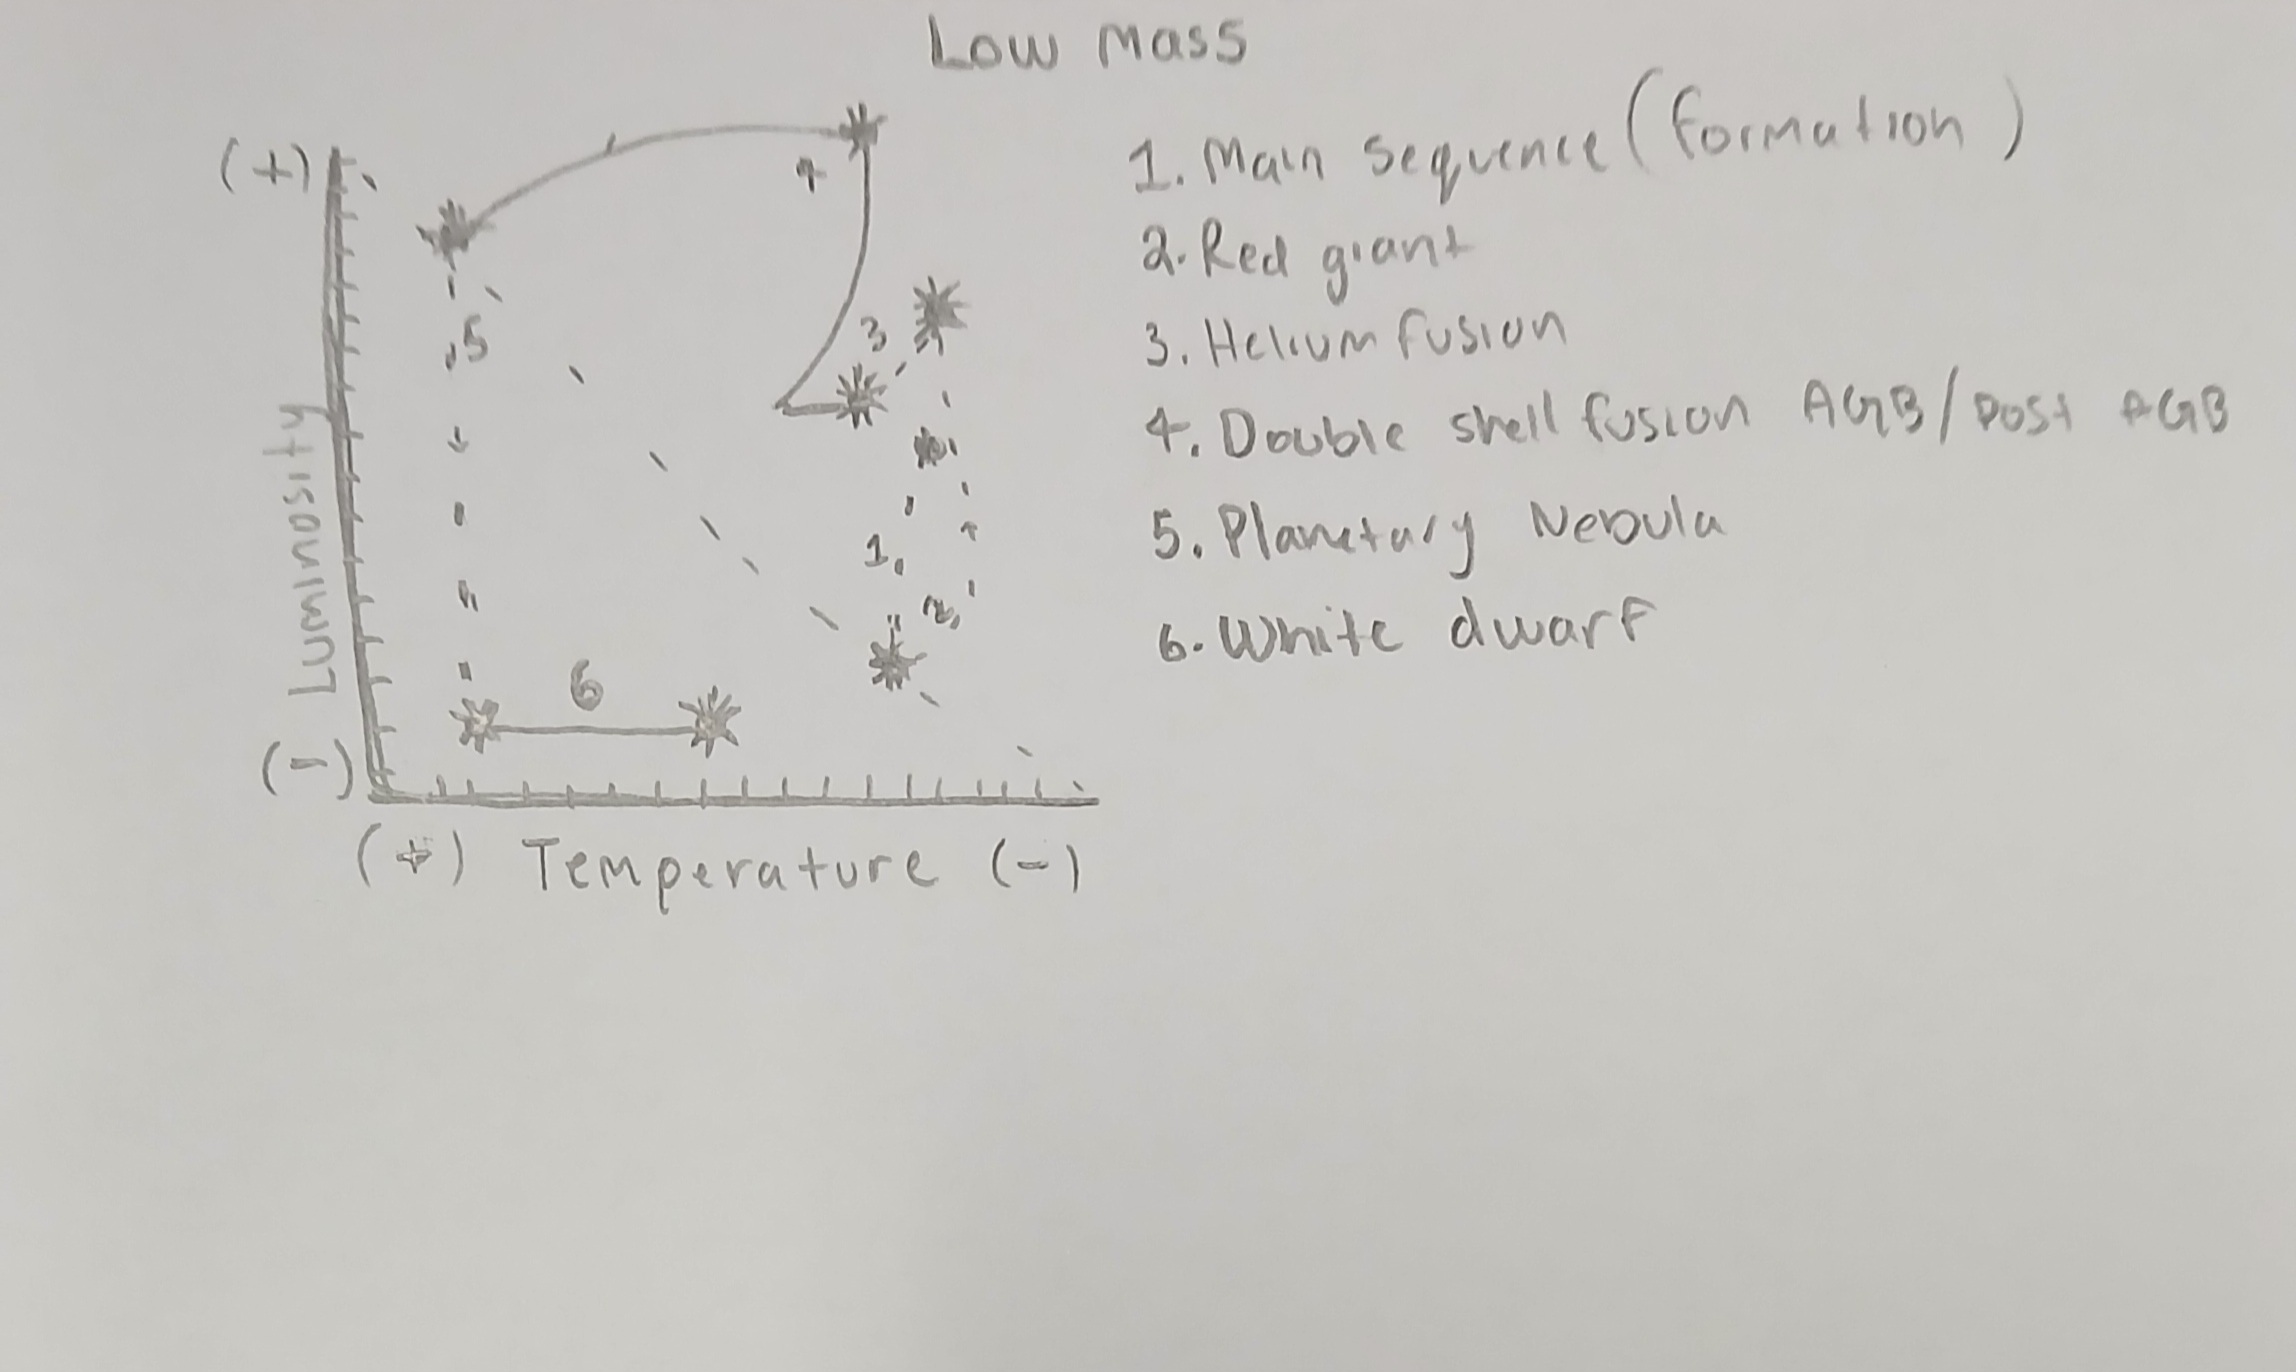 Low Mass
(+)
Luminosity
(-)
(+) Temperature (-)
1.
2.
3
4
5
6
1. Main Sequence (formation)
2. Red giant
3. Helium fusion
4. Double shell fusion AGB/post AGB
5. Planetary Nebula
6. White dwarf